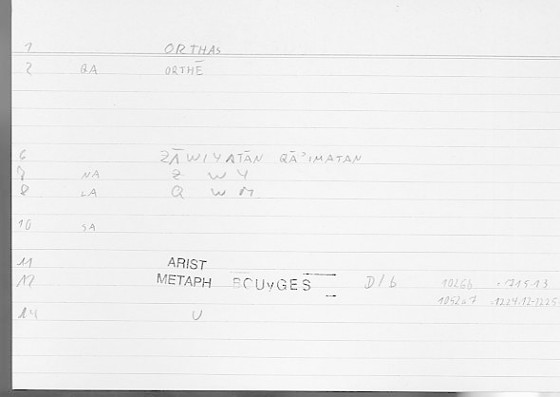 1 ORTHAS
2 QA ORTHĒ
6 ZĀWIYATĀN QĀ'IMATAN
7 NA Z W Y
8 LA Q W M
10 SA
11 ARIST
12 METAPH BOUyGES D/b 1026b
1052a7 1224.12-1225
14 U